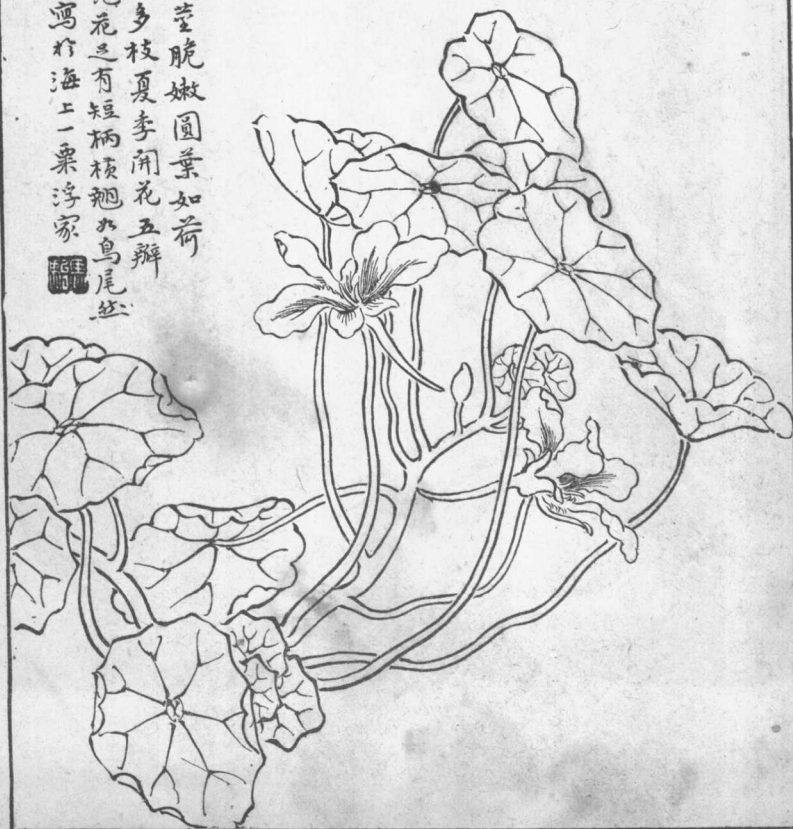 莖脆嫩圓葉如荷
多枝夏季開花五瓣
花足有短柄橫翹如鳥尾然
寫於海上一粟浮家